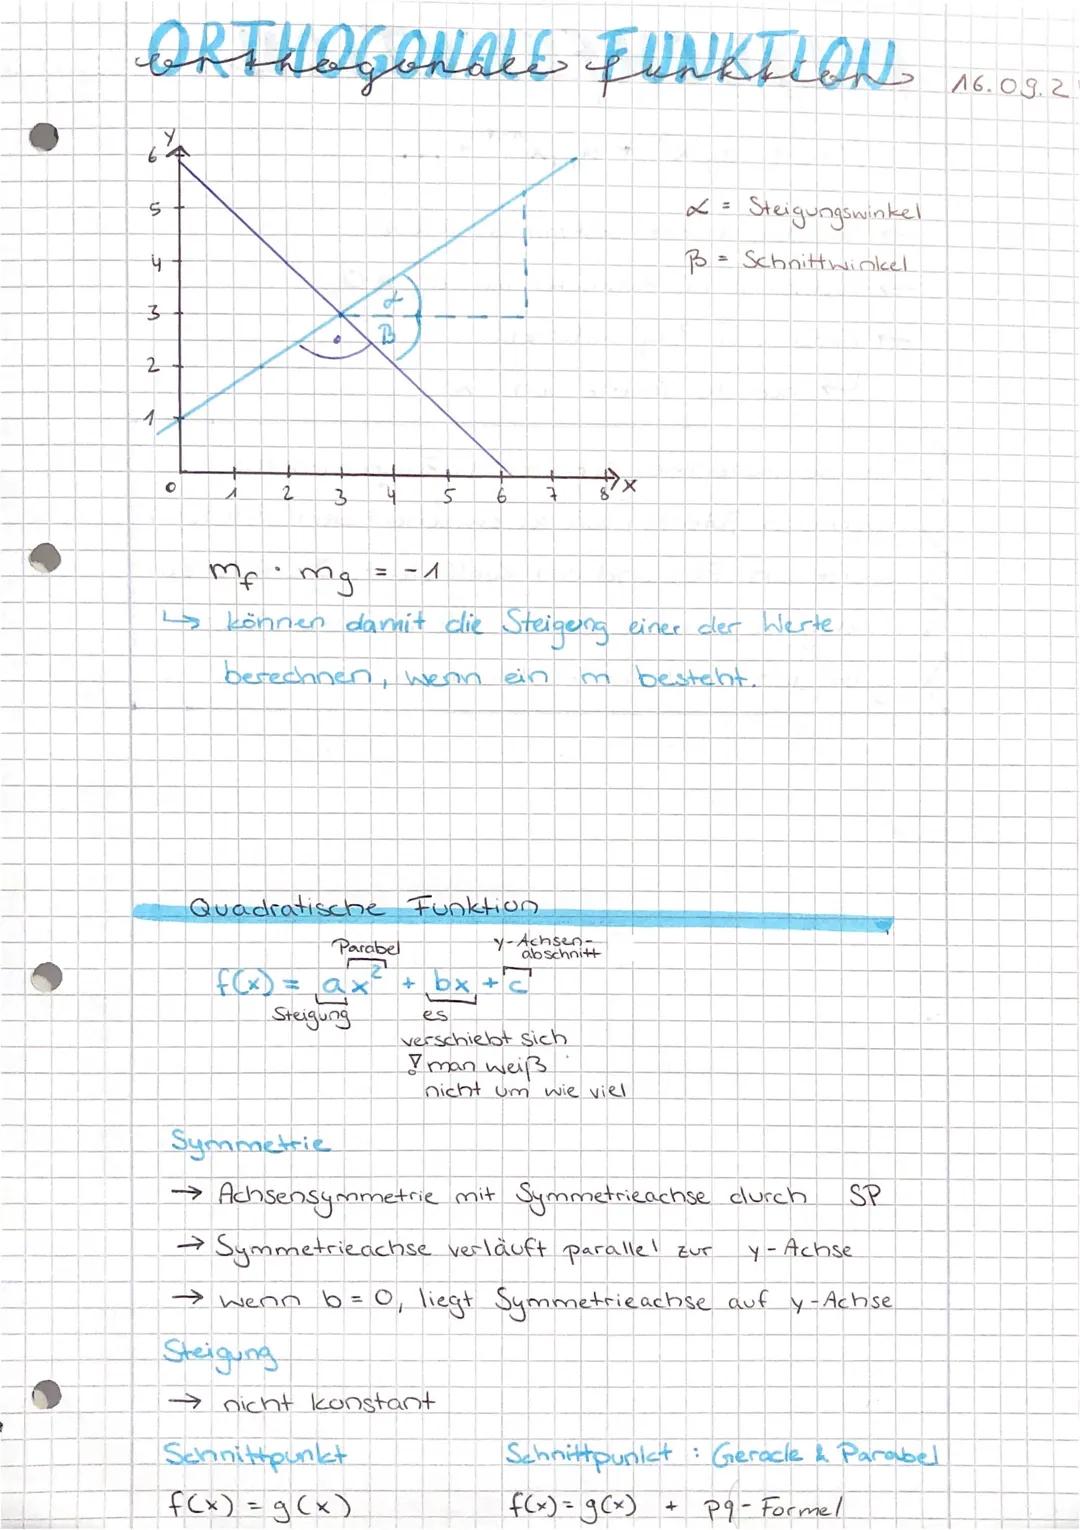 ORTHOGONALE FUNKTION
orthogonale funktion
16.09.2
y
6
5
4
3
2
1
0 1 2 3 4 5 6 7 8 x
α
β
α = Steigungswinkel
β = Schnittwinkel
mf · mg = -1
↳ können damit die Steigung einer der Werte
berechnen, wenn ein m besteht.
Quadratische Funktion
Parabel
y-Achsen-
abschnitt
f(x) = ax² + bx + c
Steigung
es
verschiebt sich
! man weiß
nicht um wie viel
Symmetrie
→ Achsensymmetrie mit Symmetrieachse durch SP
→ Symmetrieachse verläuft parallel zur y-Achse
→ wenn b = 0, liegt Symmetrieachse auf y-Achse
Steigung
→ nicht konstant
Schnittpunkt
f(x) = g(x)
Schnittpunkt : Gerade & Parabel
f(x) = g(x) + pq-Formel